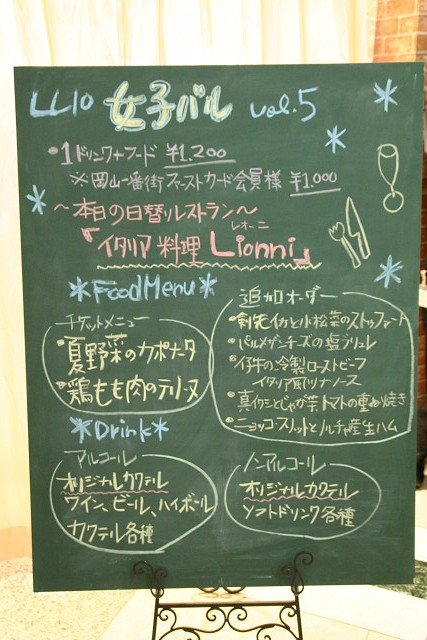 LL10 女子バル vol.5
•1ドリンク+フード ¥1,200
※岡山一番街ファーストカード会員様 ¥1,000
～本日の日替りレストラン～
レオーニ
『イタリア料理 Lionni』
*FoodMenu*
チケットメニュー
•夏野菜のカポナータ
•鶏もも肉のテリーヌ
追加オーダー
•剣先イカと小松菜のストゥファート
•パルメザンチーズの塩ブリュレ
•仔牛の冷製ローストビーフ
イタリア風ツナソース
•真イワシとじゃが芋トマトの重ね焼き
•ニョッコ・フリットとノルチャ産生ハム
*Drink*
アルコール
オリジナルカクテル
ワイン、ビール、ハイボール
カクテル各種
ノンアルコール
オリジナルカクテル
ソフトドリンク各種